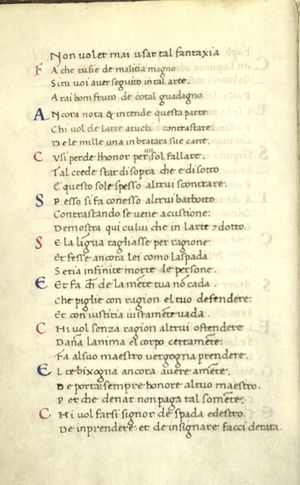 Non voler mai usar tal fantaxia
F A che tu sie de malitia magno
Si tu voi aver seguito in tal arte,
A rai bom fruto de cotal guadagno.
A Ncora nota & intende questa parte.
Chi vol de larte a tuoti contrastare.
De le mille una in bratara sue carte.
C Vsi perde lhonor per un sol fallare.
Tal crede star di sopra che e di sotto
E questo sole spesso altrui scontrare.
S Pesso si fa con esso altrui barbotto
Contrastando se vene a custione:
Demostra qui cului che in larte è dotto.
S E la ligua tagliasse per ragione:
Et fesse ancora lei como la spada.
Seria infinite morte le persone.
E Et fa che de la mete tua nō cada.
Che piglie con ragion el tuo defendere:
Et con iustitia iustamēte vada.
C Hi vol senza ragion altrui ofendere
Dāna lanima el corpo certamēte:
Fa al suo maestro vergogna prendere.
E L te bixogna ancora avere amēte.
De portar sempre honore al tuo maestro.
Per che denar non paga tal somēte.
C Hi vol farsi signor de spada e destro.
De inprendere et de insignare facci de tata.